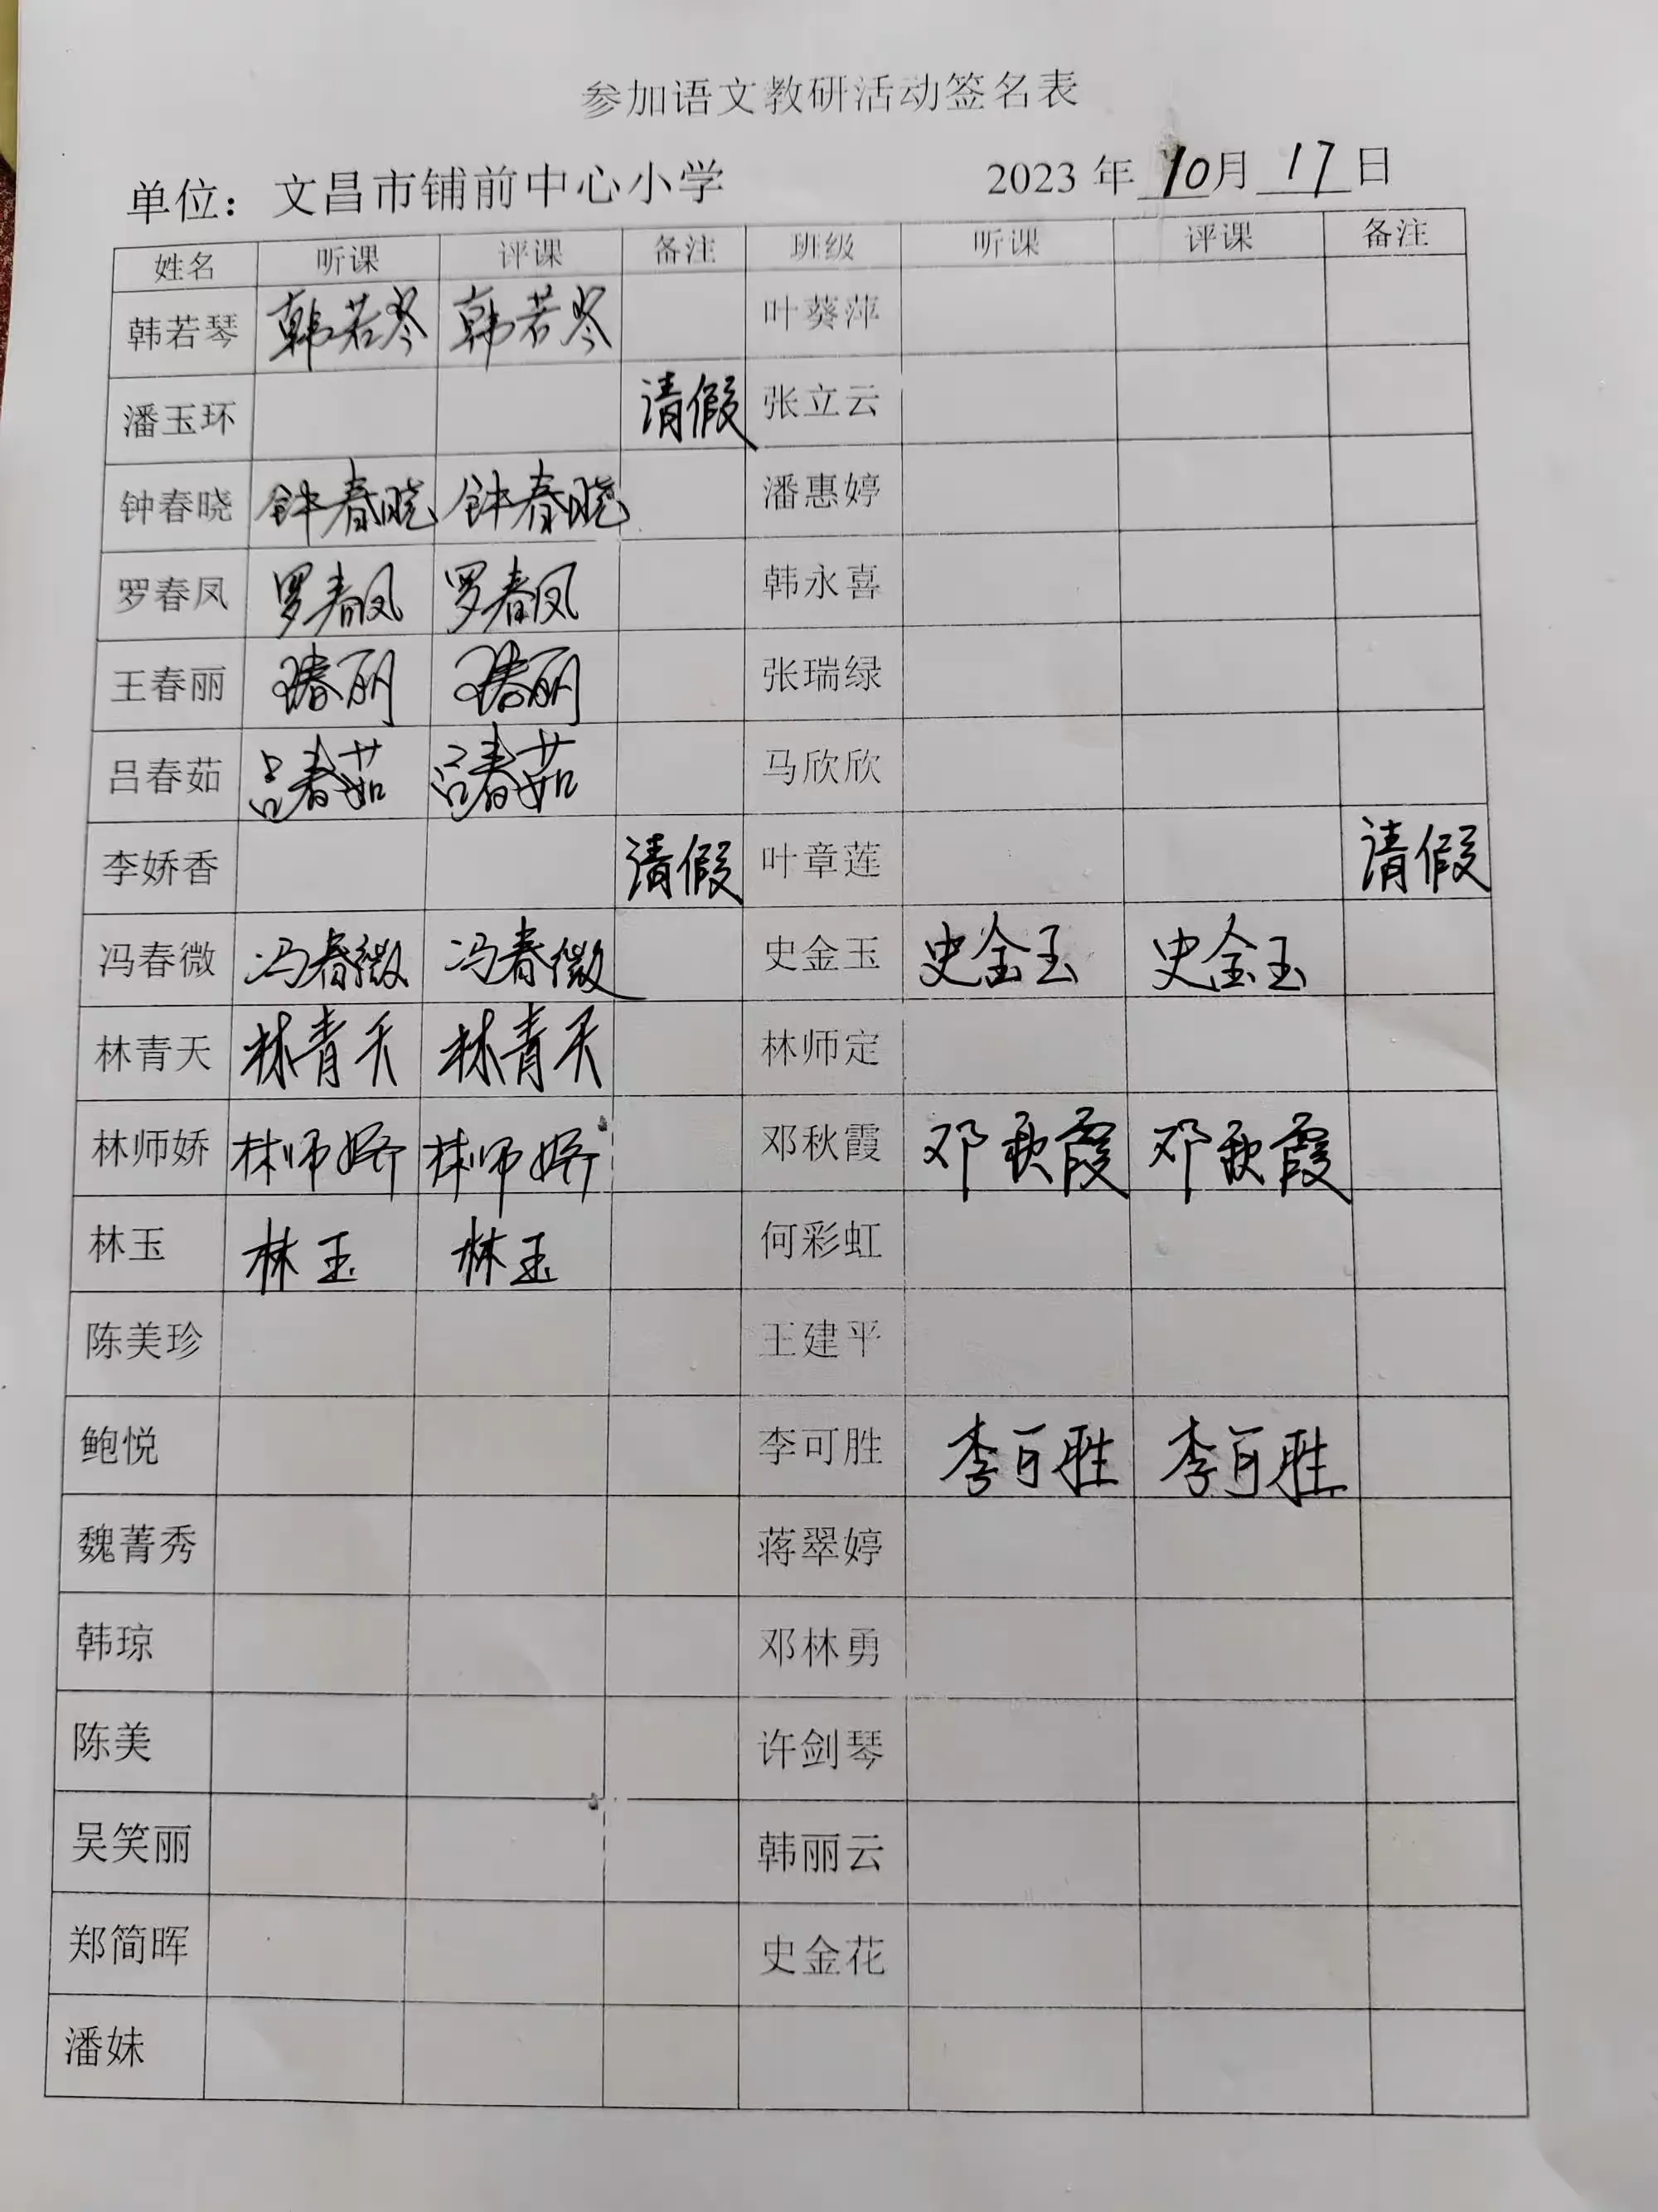 参加语文教研活动签名表
单位：文昌市铺前中心小学 2023年 10月 17日
姓名 听课 评课 备注 班级 听课 评课 备注
韩若琴 韩若琴 韩若琴 叶葵萍
潘玉环 请假 张立云
钟春晓 钟春晓 钟春晓 潘惠婷
罗春凤 罗春凤 罗春凤 韩永喜
王春丽 王春丽 王春丽 张瑞绿
吕春茹 吕春茹 吕春茹 马欣欣
李娇香 请假 叶章莲 请假
冯春微 冯春微 冯春微 史金玉 史金玉 史金玉
林青天 林青天 林青天 林师定
林师娇 林师娇 林师娇 邓秋霞 邓秋霞 邓秋霞
林玉 林玉 林玉 何彩虹
陈美珍 王建平
鲍悦 李可胜 李可胜 李可胜
魏菁秀 蒋翠婷
韩琼 邓林勇
陈美 许剑琴
吴笑丽 韩丽云
郑简晖 史金花
潘妹